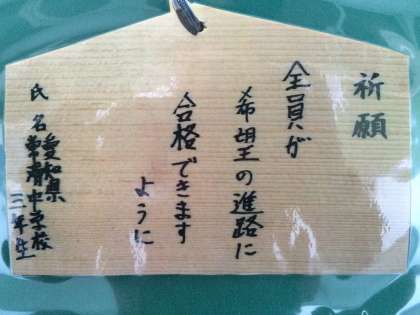 祈願
全員が
希望の進路に
合格できます
ように
氏名
愛知県
常滑中学校
三年生